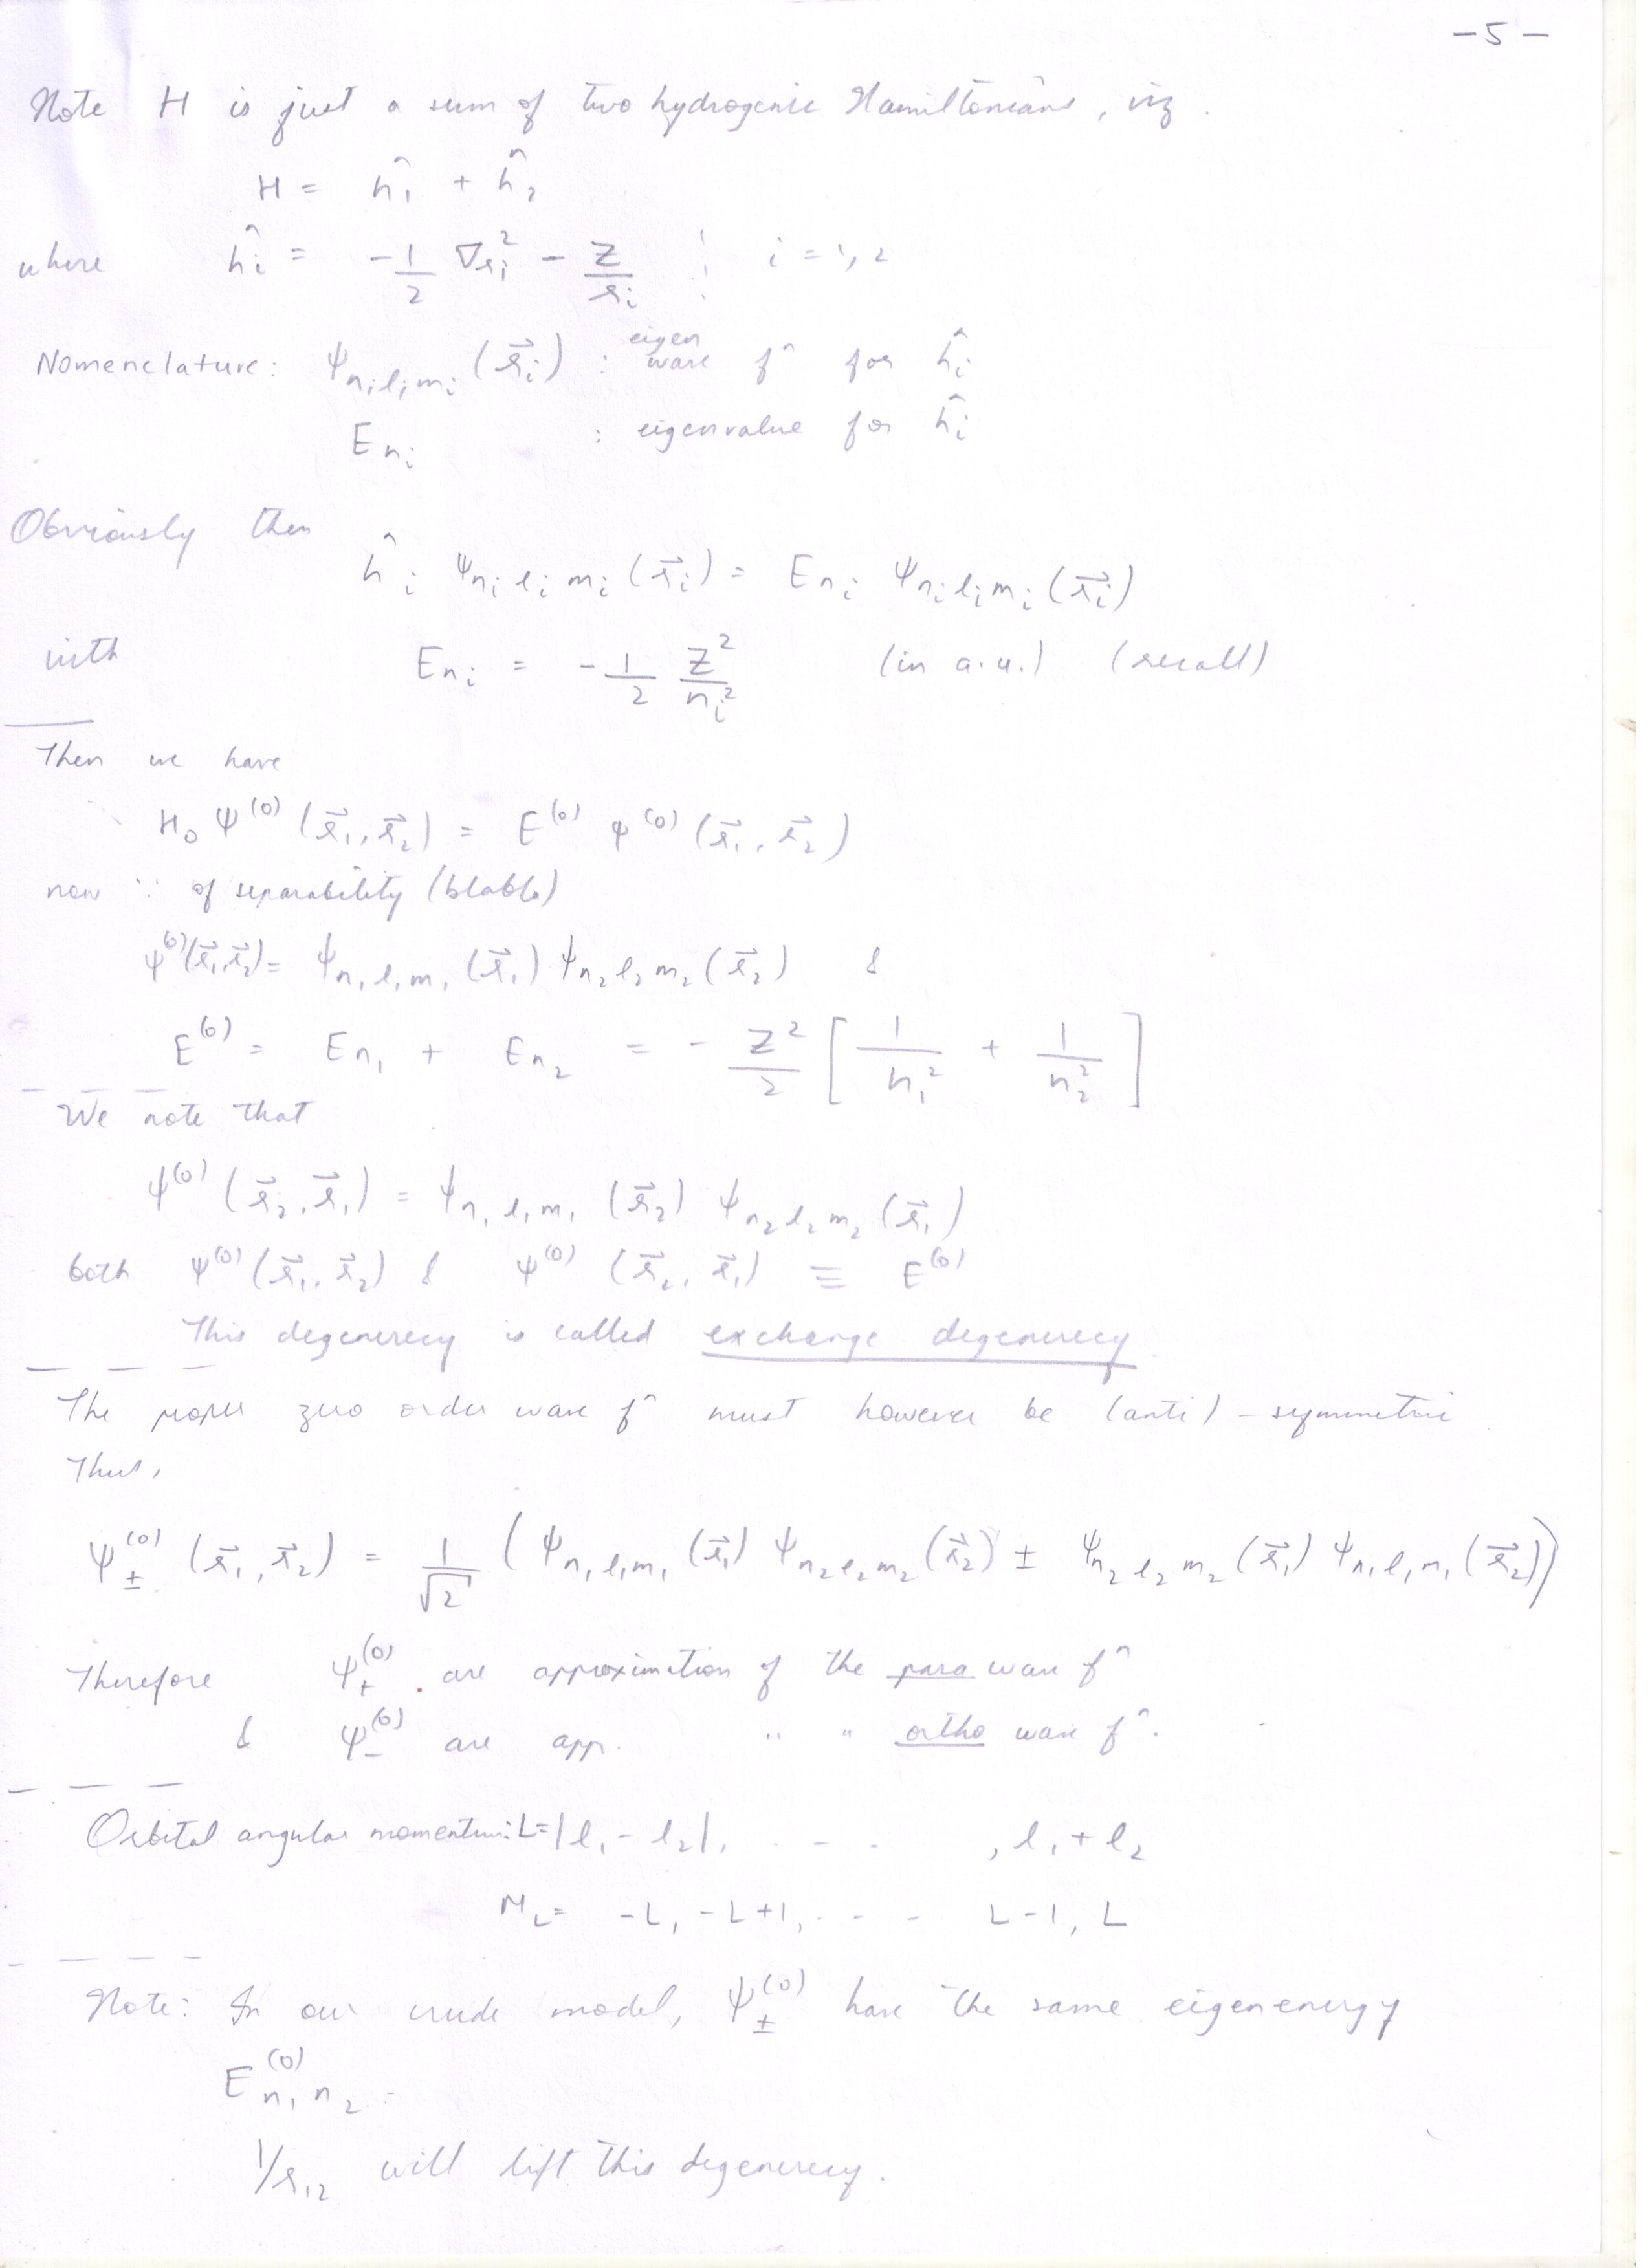 -5-
Note H is just a sum of two hydrogenic Hamiltonians, viz.
H = ĥ₁ + ĥ₂
where ĥᵢ = -1/2 ∇rᵢ² - Z/rᵢ ; i = 1, 2
Nomenclature: ψnᵢlᵢmᵢ (r⃗ᵢ) : eigen wave fⁿ for ĥᵢ
Enᵢ : eigenvalue for ĥᵢ
Obviously then
ĥᵢ ψnᵢlᵢmᵢ (r⃗ᵢ) = Enᵢ ψnᵢlᵢmᵢ (r⃗ᵢ)
with Enᵢ = -1/2 Z²/nᵢ² (in a.u.) (recall)
Then we have
H₀ ψ⁽⁰⁾ (r⃗₁, r⃗₂) = E⁽⁰⁾ ψ⁽⁰⁾ (r⃗₁, r⃗₂)
now ∵ of separability (blabla)
ψ⁽⁰⁾(r⃗₁,r⃗₂) = ψn₁l₁m₁ (r⃗₁) ψn₂l₂m₂ (r⃗₂) &
E⁽⁰⁾ = En₁ + En₂ = - Z²/2 [ 1/n₁² + 1/n₂² ]
We note that
ψ⁽⁰⁾ (r⃗₂, r⃗₁) = ψn₁l₁m₁ (r⃗₂) ψn₂l₂m₂ (r⃗₁)
both ψ⁽⁰⁾ (r⃗₁, r⃗₂) & ψ⁽⁰⁾ (r⃗₂, r⃗₁) ≡ E⁽⁰⁾
This degenerecy is called exchange degenerecy
The proper zero order wave fⁿ must however be (anti)-symmetric.
Thus,
ψ±⁽⁰⁾ (r⃗₁, r⃗₂) = 1/√2 (ψn₁l₁m₁ (r⃗₁) ψn₂l₂m₂ (r⃗₂) ± ψn₂l₂m₂ (r⃗₁) ψn₁l₁m₁ (r⃗₂))
Therefore ψ₊⁽⁰⁾ are approximation of the para wave fⁿ
& ψ₋⁽⁰⁾ are app. " " ortho wave fⁿ.
Orbital angular momentum: L = |l₁ - l₂|, - - - , l₁ + l₂
M_L = -L, -L+1, - - - L-1, L
Note: In our crude model, ψ±⁽⁰⁾ have the same eigenenergy
E⁽⁰⁾n₁n₂.
1/r₁₂ will lift this degenerecy.